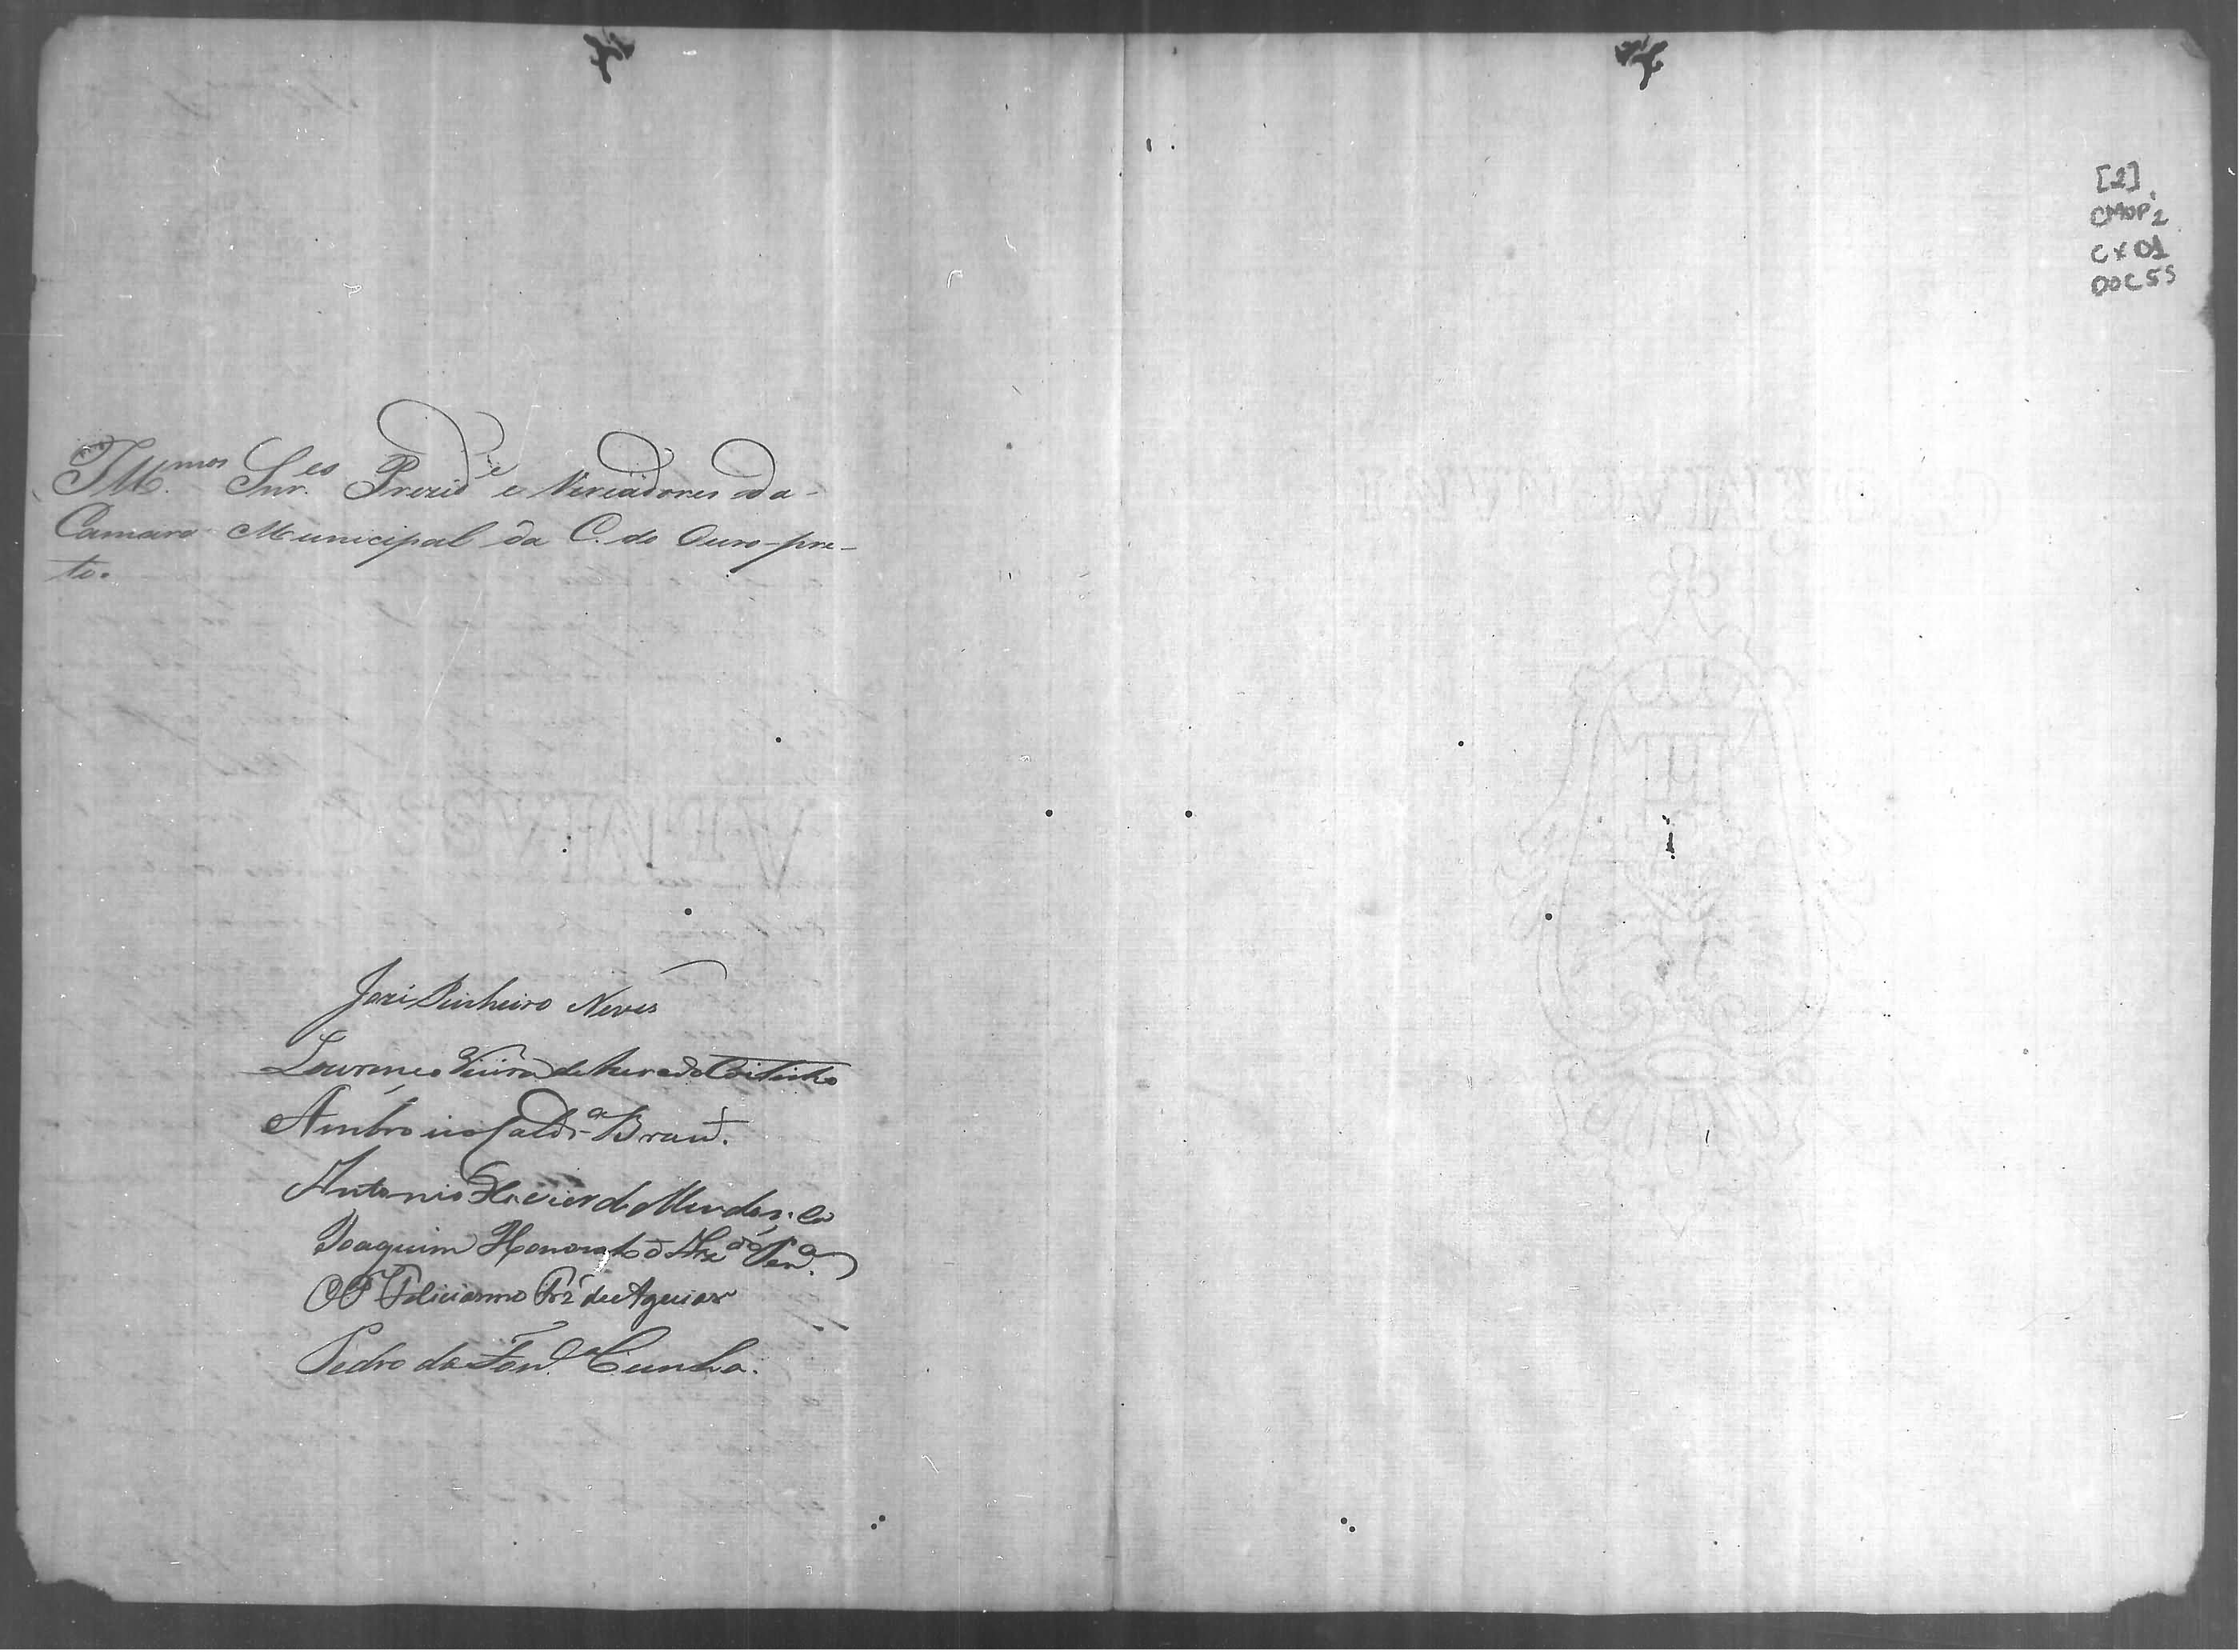 Ill.mos Snr.es Prezid.e e Vereadores da
Camara Municipal da C. do Ouro-pre-
to.
José Pinheiro Neves
Lourenço Vieira de Azeredo Coitinho
Ambrosio Cald.ra Brand.
Antonio Xavier de Mendoça
Joaquim Honorato
Felicianno de Aguiar
Pedro da Fon.ca Cunha.
[2]
CMOP2
CX 01
DOC 55